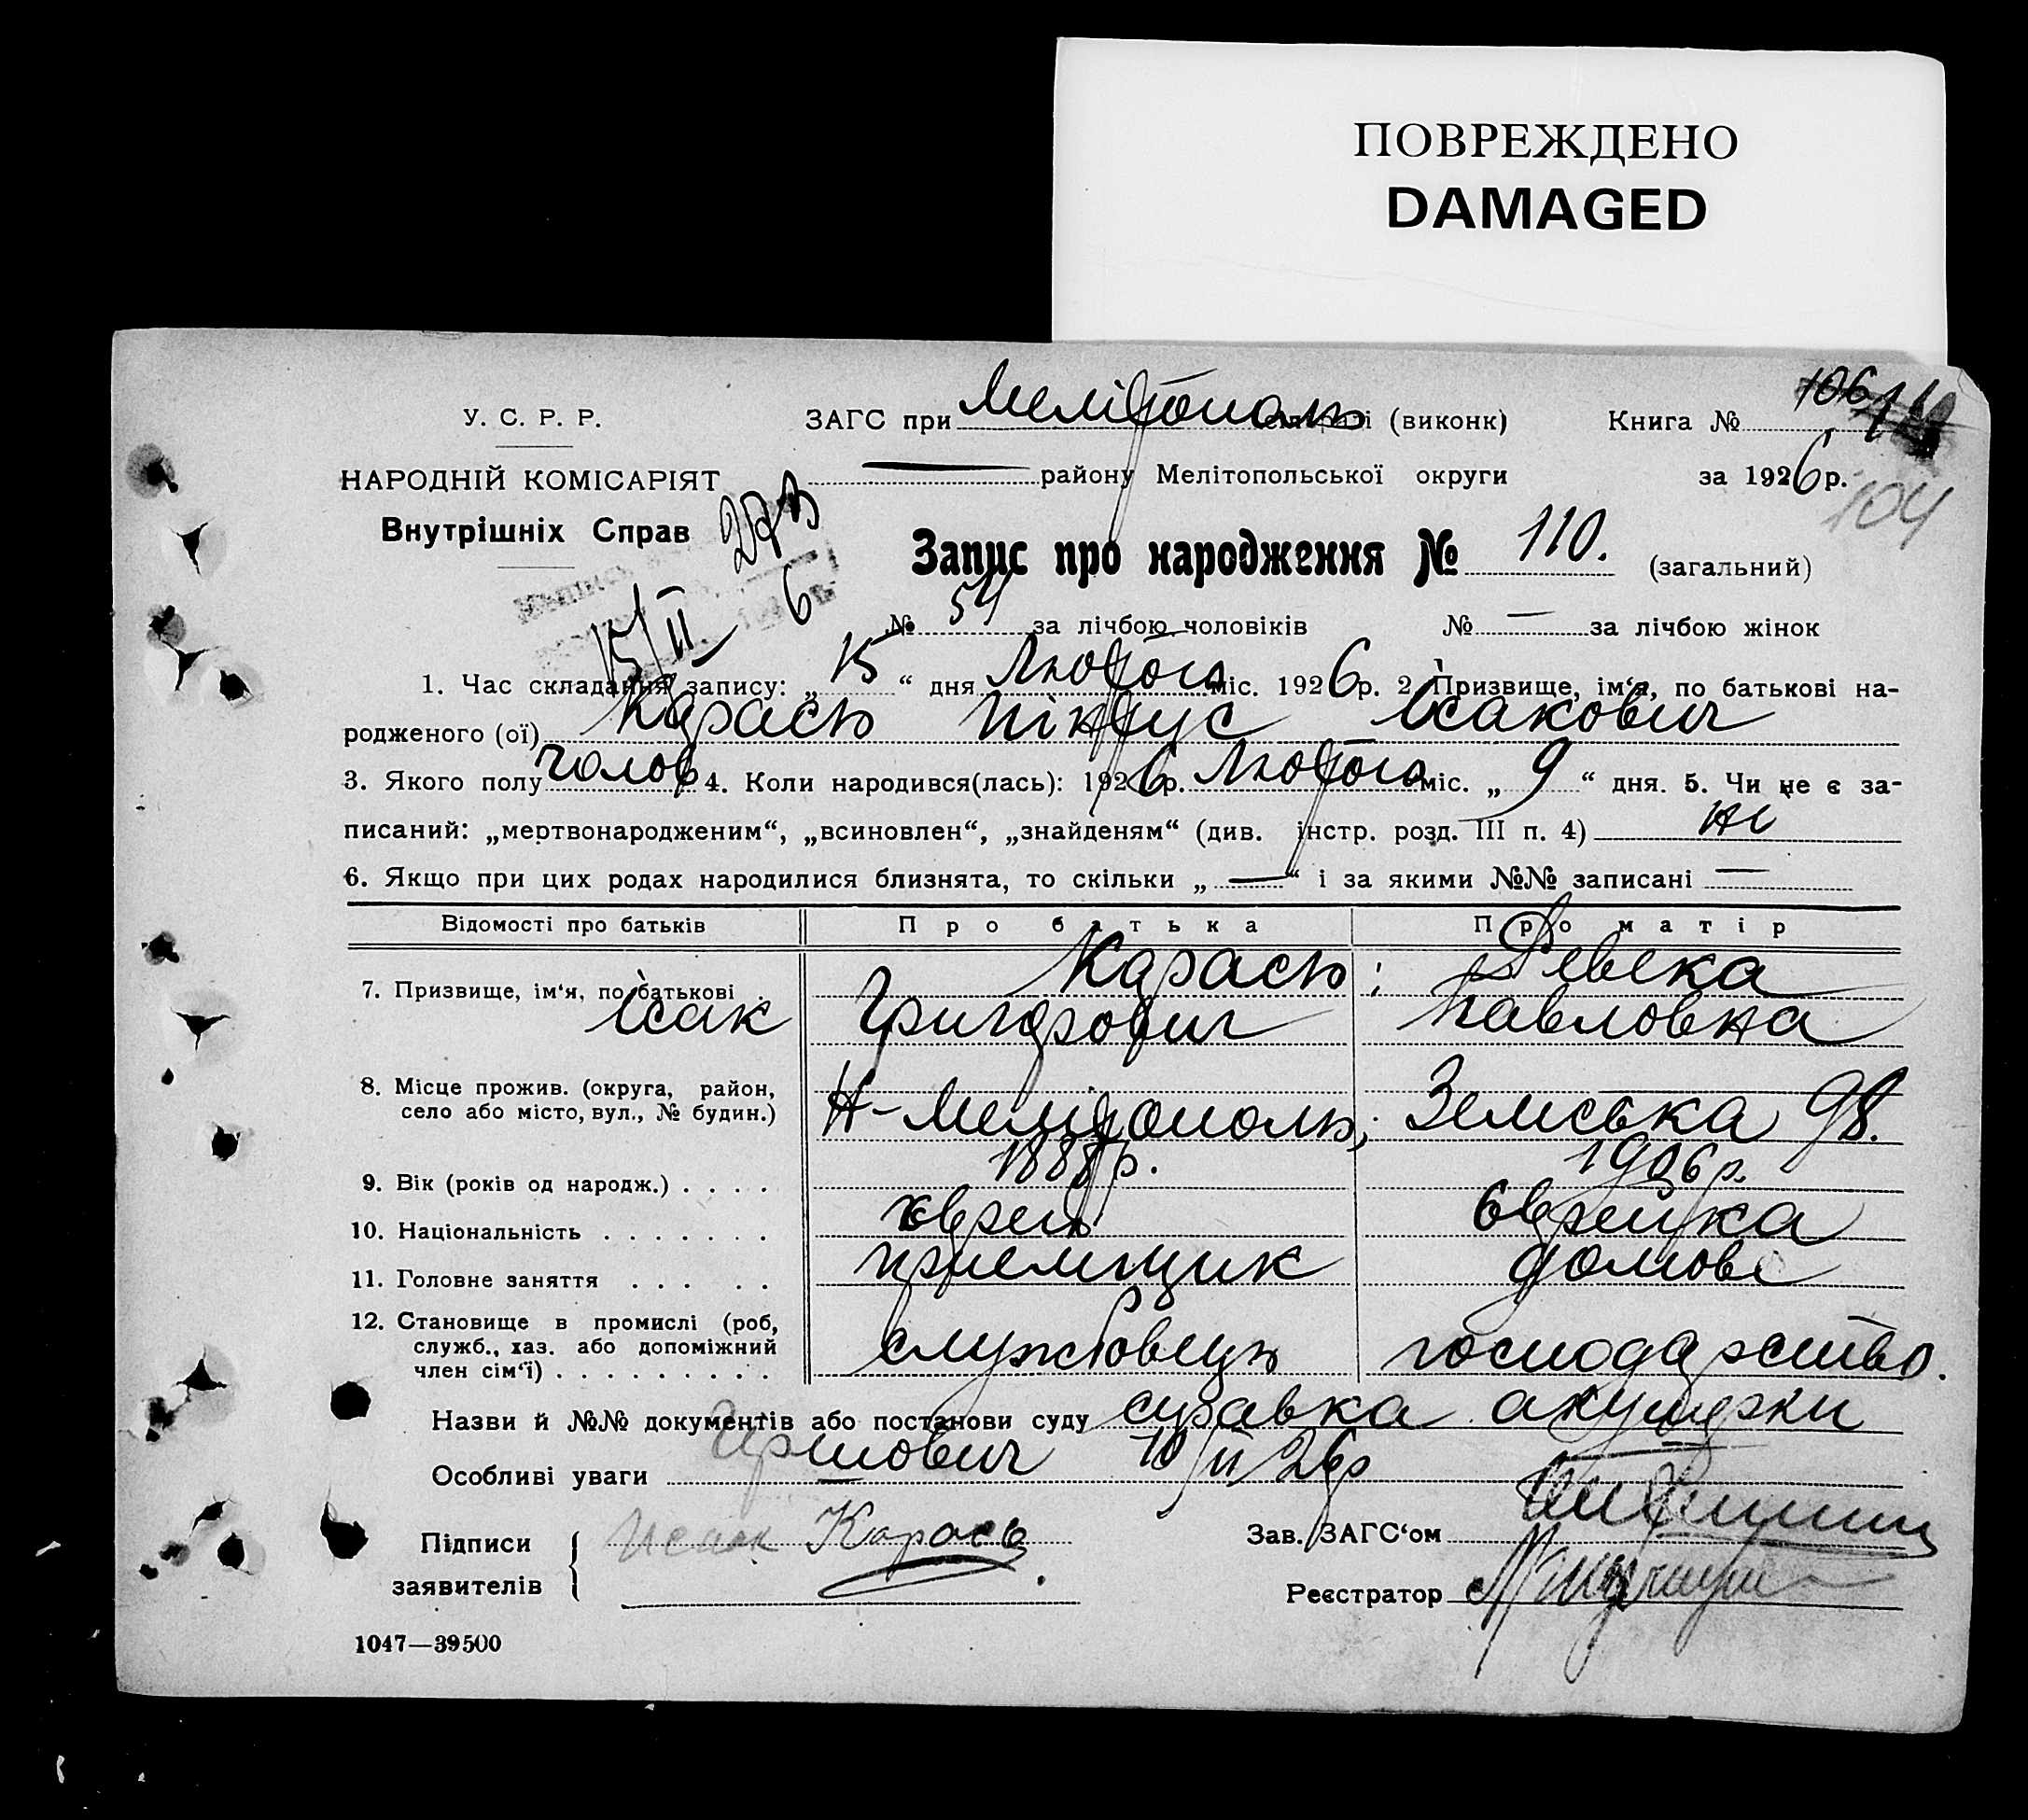 ПОВРЕЖДЕНО
DAMAGED
У. С. Р. Р.
НАРОДНІЙ КОМІСАРІЯТ
Внутрішніх Справ
ЗАГС при Мелітополь (виконк)
району Мелітопольської округи
Книга № 106
за 1926 р.
104
Запис про народження № 110. (загальний)
№ 54 за лічбою чоловіків № — за лічбою жінок
15/II 6
1. Час складання запису: „ 15 “ дня Лютого міс. 1926 р. 2. Призвище, ім‘я, по батькові на-
родженого (ої) Карась Пінхус Ісакович
3. Якого полу чолов 4. Коли народився(лась): 1926 р. Лютого міс. „ 9 “ дня. 5. Чи не є за-
писаний: „мертвонародженим“, „всиновлен“, „знайденям“ (див. інстр. розд. III п. 4) ні
6. Якщо при цих родах народилися близнята, то скільки „ — “ і за якими №№ записані —
Відомості про батьків Про батька Про матір
7. Призвище, ім‘я, по батькові . Карась ; Ревека
Ісак Григорович Павловна
8. Місце прожив. (округа, район,
село або місто, вул., № будин.) Н-Мелітополь; Земська 98.
9. Вік (років од народж.) . . . . 1888 р. 1906 р.
10. Національність . . . . . . . єврей єврейка
11. Головне заняття . . . . . приємщик домове
12. Становище в промислі (роб,
служб., хаз. або допоміжний
член сім‘ї) . . . . . . . . . службовець господарство.
Назви й №№ документів або постанови суду справка акушерки
Особливі уваги Гершович 10/II 26 р
Підписи
заявителів
Исаак Карась
Зав. ЗАГС‘ом
Реєстратор
1047—39500